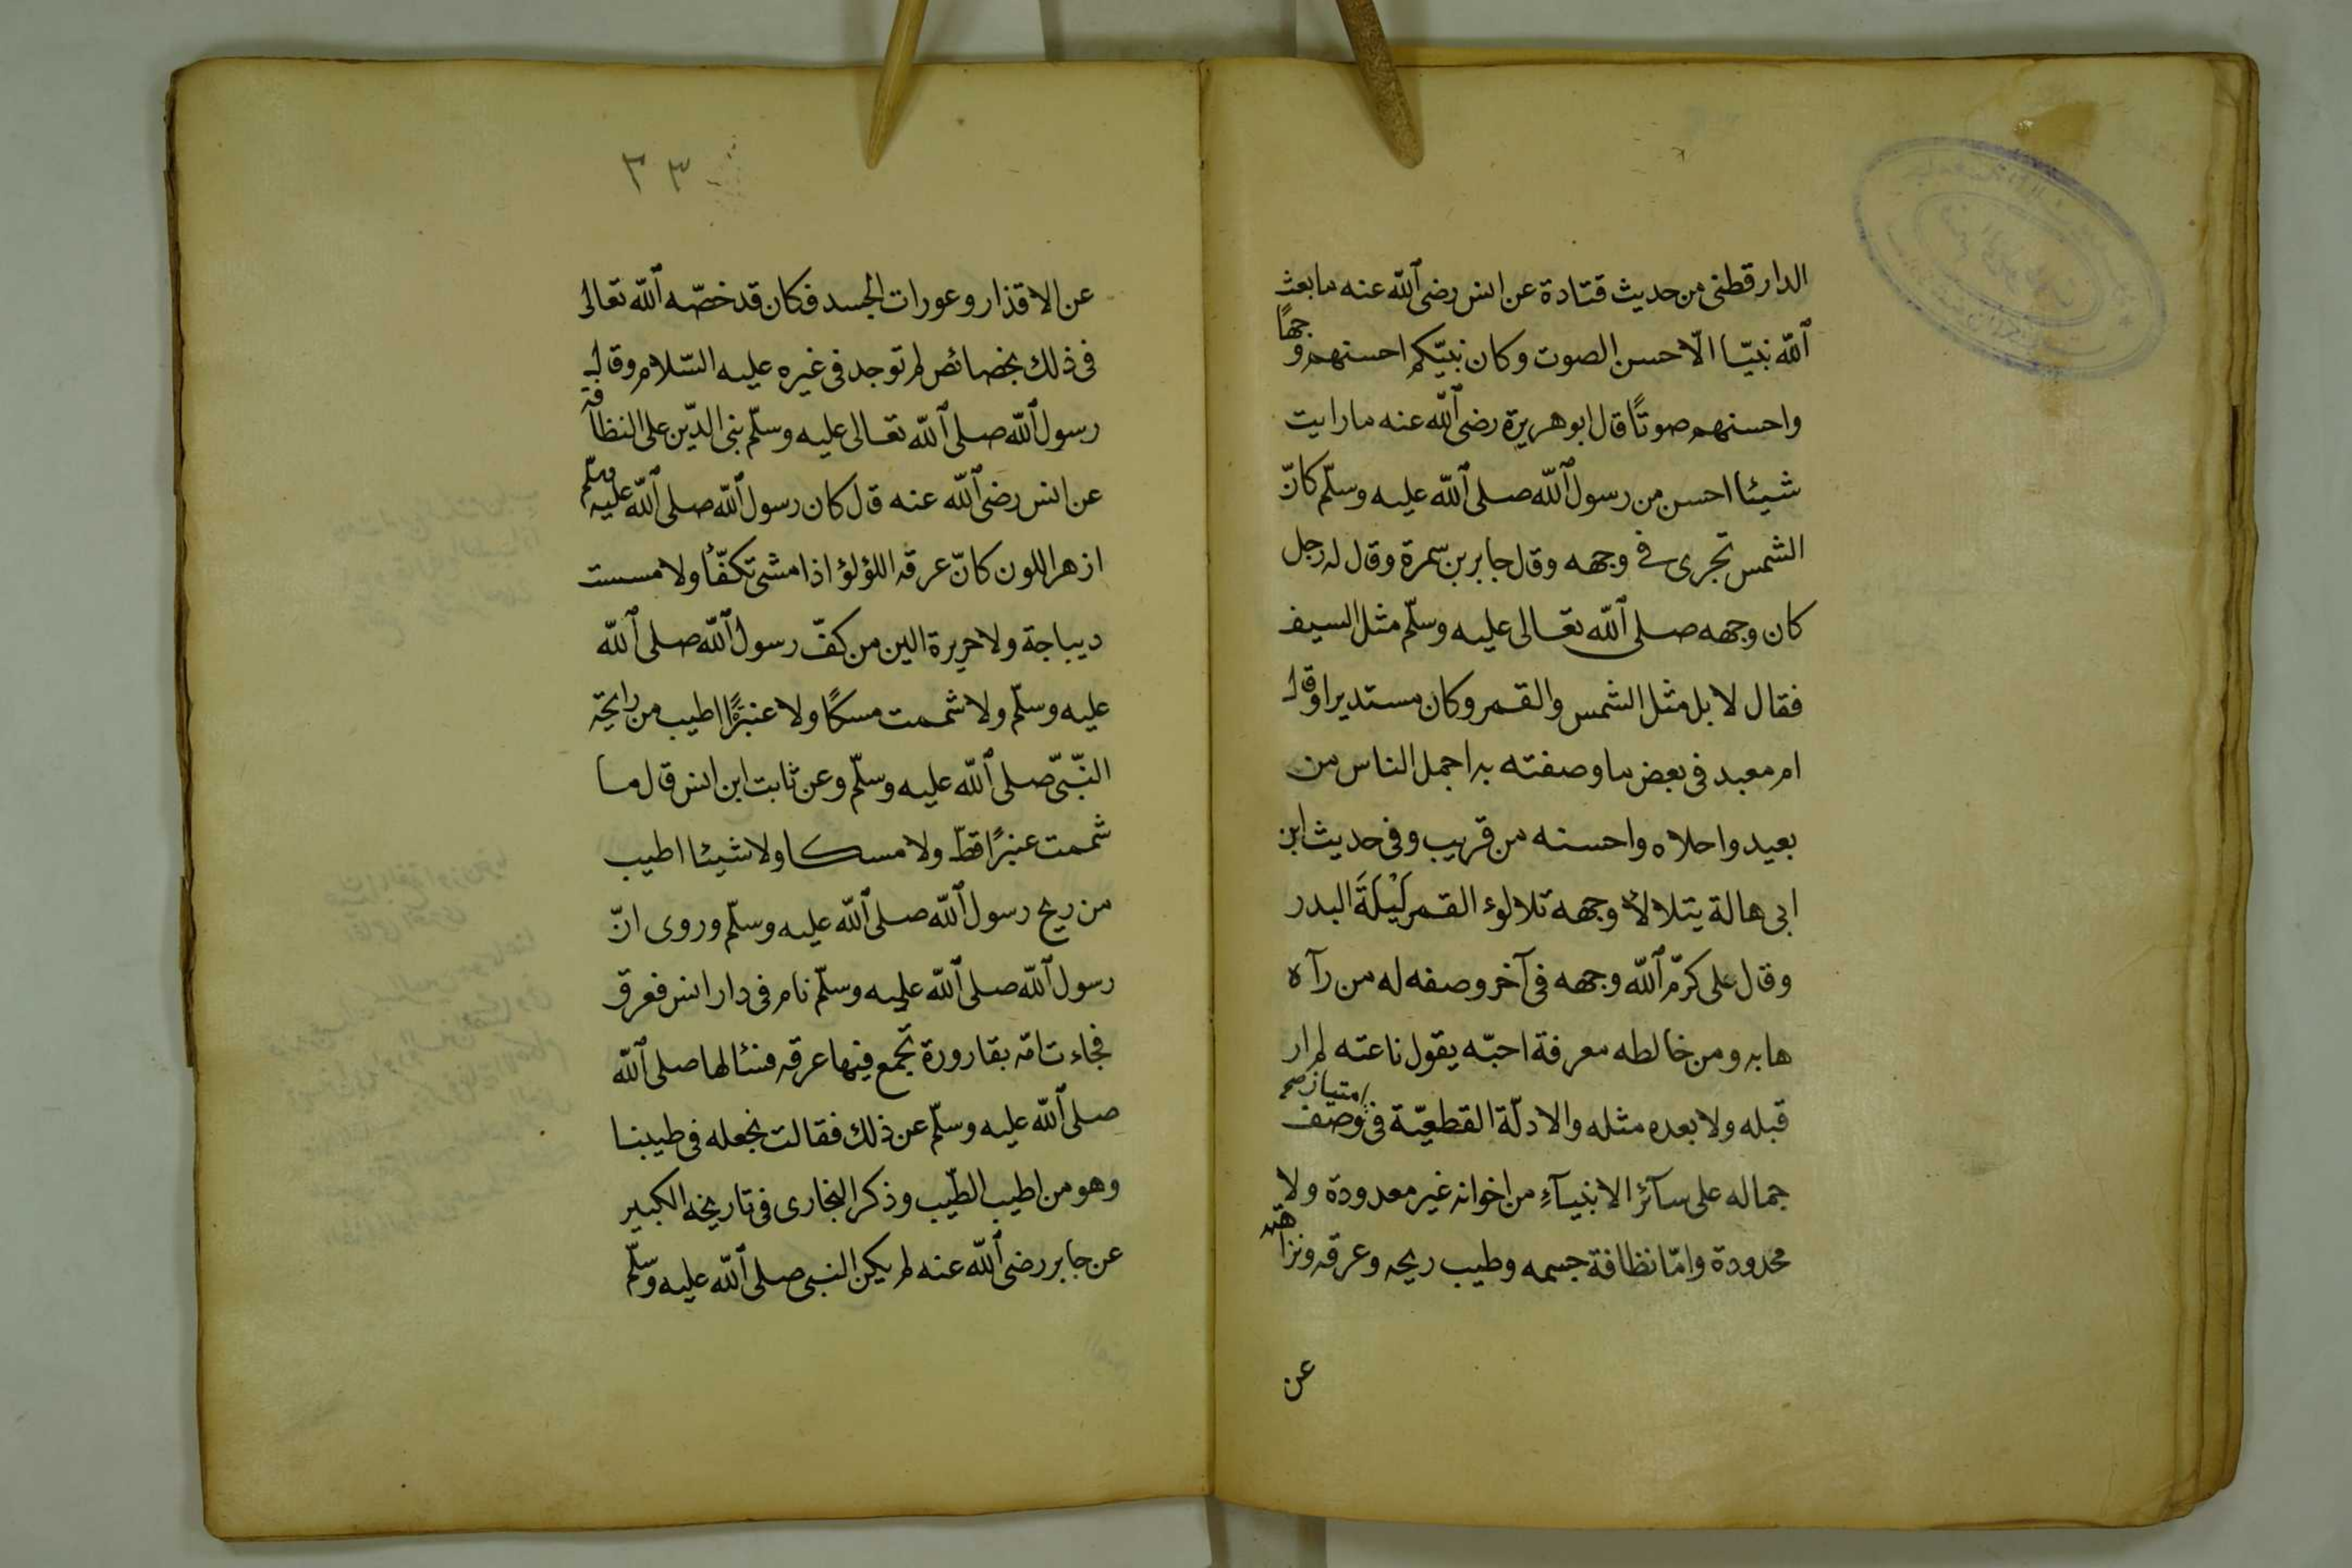 الدارقطنى من حديث قتادة عن انس رضى الله عنه ما بعث
الله نبيّا الّا حسن الصوت وكان نبيّكم احسنهم وجهًا
واحسنهم صوتًا قال ابو هريرة رضى الله عنه ما رايت
شيئا احسن من رسول الله صلى الله عليه وسلّم كانّ
الشمس تجرى فى وجهه وقال جابر بن سمرة وقال له رجل
كان وجهه صلى الله تعالى عليه وسلّم مثل السيف
فقال لا بل مثل الشمس والقمر وكان مستديرا وقال
ام معبد فى بعض ما وصفته به اجمل الناس من
بعيد واحلاه واحسنه من قريب وفى حديث ابن
ابى هالة يتلالأ وجهه تلالوء القمر لَيْلَةَ البدر
وقال على كرّم الله وجهه فى آخر وصفه له من رآه
هابه ومن خالطه معرفة احبّه يقول ناعته لم ار
قبله ولا بعده مثله والادلّة القطعيّة فى وصف امتياز صح
جماله على سآئر الانبيآءِ من اخوانه غير معدودة ولا
محدودة وامّا نظافة جسمه وطيب ريحه وعرقه ونزاهته
عن
٣٣
عن الاقذار وعورات الجسد فكان قد خصّه الله تعالى
فى ذلك بخصائص لم توجد فى غيره عليه السّلام وقال
رسول الله صلى الله تعالى عليه وسلّم بنى الدّين على النظافة
عن انس رضى الله عنه قال كان رسول الله صلى الله عليه وسلّم
ازهر اللون كانّ عرقه اللؤلؤ اذا مشى تكفّأ ولا مسست
ديباجة ولا حريرة الين من كفّ رسول الله صلى الله
عليه وسلّم ولا شممت مسكًا ولا عنبرةً اطيب من رايحة
النّبىّ صلى الله عليه وسلّم وعن ثابت ابن انس قال ما
شممت عنبرًا قطّ ولا مسكا ولا شيئا اطيب
من ريح رسول الله صلى الله عليه وسلّم وروى انّ
رسول الله صلى الله عليه وسلّم نام فى دار انس فعرق
فجاءت امّه بقارورة تجمع فيها عرقه فسئالها صلى الله
صلى الله عليه وسلّم عن ذلك فقالت نجعله فى طيبنا
وهو من اطيب الطّيب وذكر البخارى فى تاريخه الكبير
عن جابر رضى الله عنه لم يكن النبى صلى الله عليه وسلّم